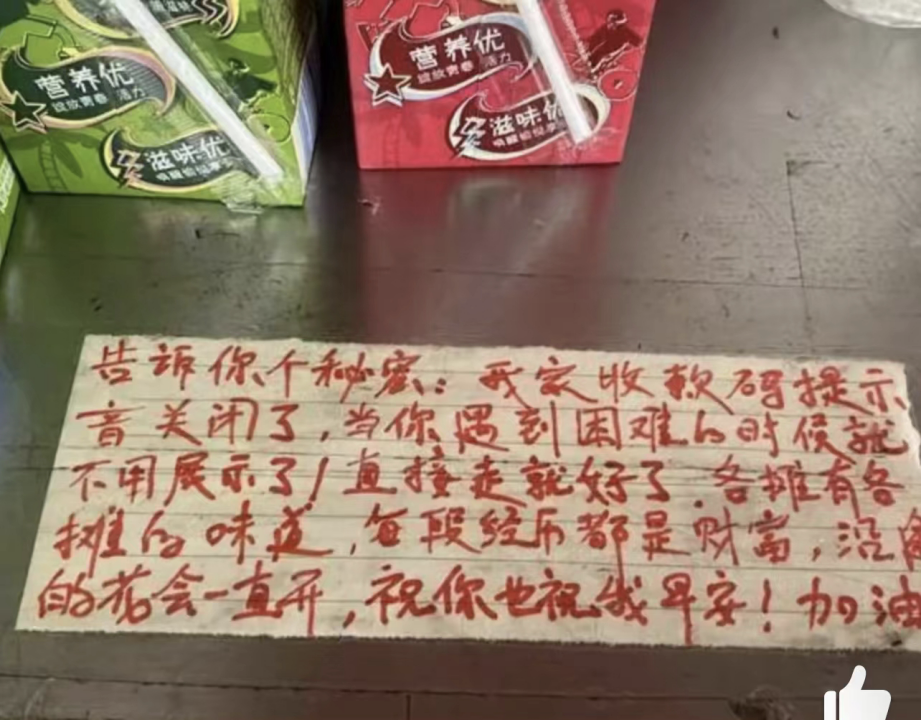 营养优
绽放青春 活力
滋味优
唤醒愉悦享
营养优
绽放青春 活力
滋味优
唤醒愉悦享
告诉你个秘密：我家收款码提示
音关闭了，当你遇到困难的时候就
不用展示了！直接走就好了．各摊有各
摊的味道，每段经历都是财富，沿
的花会一直开，祝你也祝我早安！加油